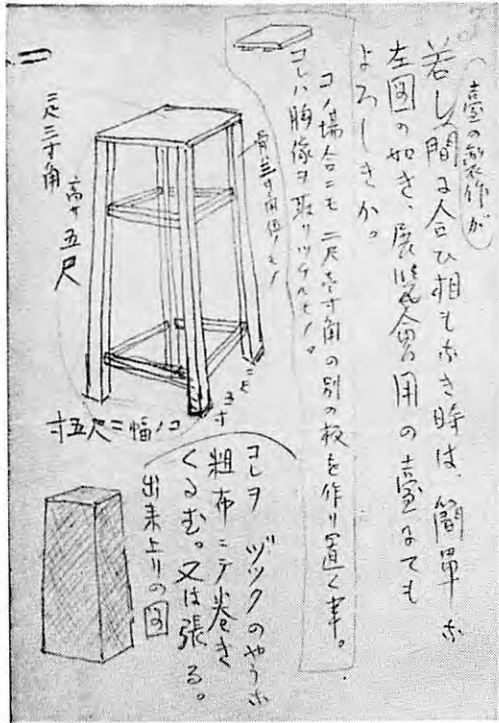 (臺の製作が
若し間に合ひ相もなき時は、簡單な
左図の如き、展覧會用の臺にても
よろしきか。
コノ場合ニモ 二尺壱寸角の別の板を作り置く事。
コレハ胸像ヲ取リツケルモノ。
骨三寸角位のモノ
二尺三寸角
高サ 五尺
二尺
三寸
コノ幅ニ尺五寸
コレヲ ヅックのやうな
粗布ニテ巻き
くるむ。又は張る。
出来上りの図